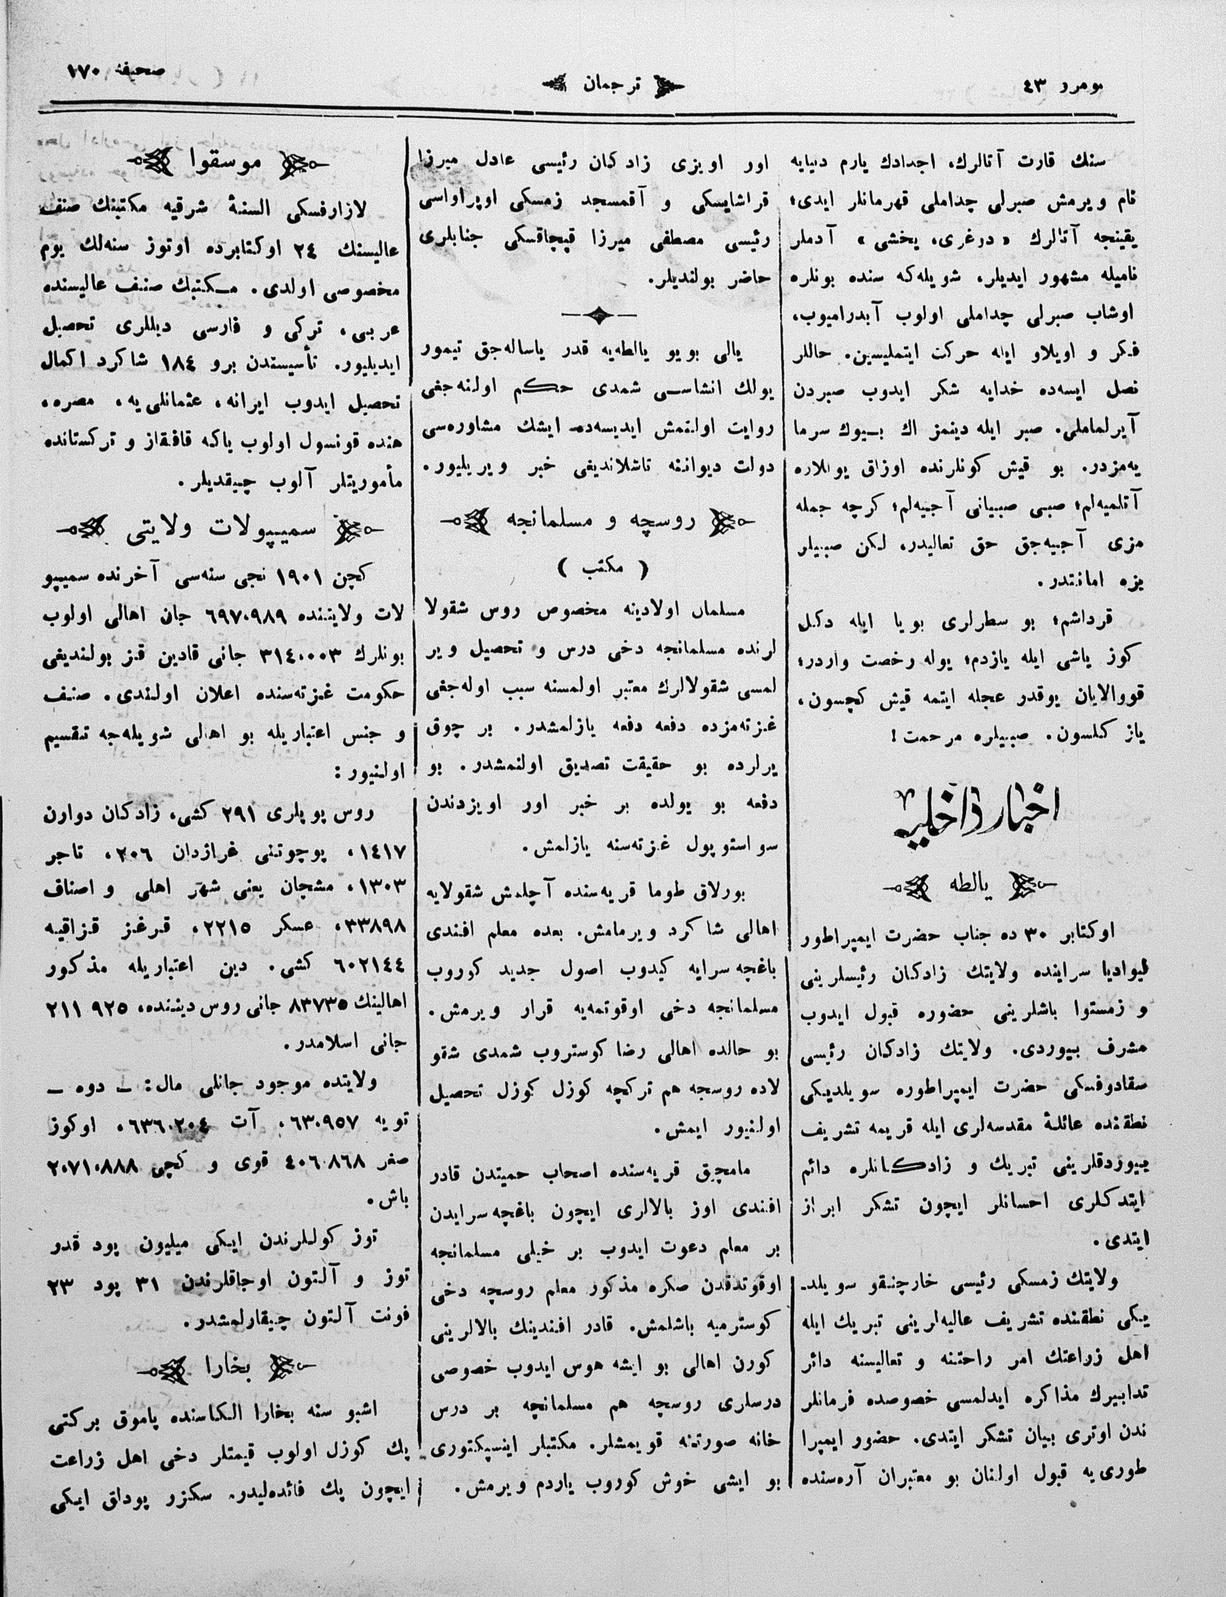 نومرو ٤٣
ترجمان
صحيفه ١٧٠
سنك قارت آتالرك، اجدادك يارم دنيايه
نام ويرمش صبرلى چداملى قهرمانلر ايدى؛
يقينجه آتالرك «دوغرى، يخشى» آدملر
ناميله مشهور ايديلر، شويله‌كه سنده بونلره
اوشاب صبرلى چداملى اولوب آبدراميوب،
فكر و اويلاو ايله حركت ايتمليسين. حاللر
نصل ايسه‌ده خدايه شكر ايدوب صبردن
آيرلماملى. صبر ايله دينمز اك بيوك سرما
يه‌مزدر. بو قيش كونلرنده اوزاق يوللاره
آتلميه‌لم؛ صبى صبيانى آجيه‌لم؛ كرچه جمله
مزى آجييه‌جق حق تعاليدر، لكن صبيلر
بزه امانتدر.
قرداشم؛ بو سطرلرى بويا ايله دكل
كوز ياشى ايله يازدم؛ يوله رخصت واردر؛
قووالايان يوقدر عجله ايتمه قيش كچسون،
ياز كلسون. صبيلره مرحمت!
اخبار داخليه
يالطه
اوكتابر ٣٠ ده جناب حضرت ايمپراطور
ليواديا سراينده ولايتك زادكان رئيسلرينى
و زمستوا باشلرينى حضوره قبول ايدوب
مشرف بيوردى. ولايتك زادكان رئيسى
سقادوفسكى حضرت ايمپراطوره سويلديكى
نطقنده عائلهٔ مقدسه‌لرى ايله قريمه تشريف
بيوردقلرينى تبريك و زادكانلره دائم
ايتدكلرى احسانلر ايچون تشكر ابراز
ايتدى.
ولايتك زمسكى رئيسى خارچنقو سويلد
يكى نطقنده تشريف عاليه‌لرينى تبريك ايله
اهل زراعتك امر راحتنه و تعاليسنه دائر
تدابيرك مذاكره ايدلمسى خصوصده فرمانلر
ندن اوترى بيان تشكر ايتدى. حضور ايمپرا
طورى‌يه قبول اولنان بو معتبران آره‌سنده
اور اويزى زادكان رئيسى عادل ميرزا
قراشايسكى و آقمسجد زمسكى اوپراواسى
رئيسى مصطفى ميرزا قپچاقسكى جنابلرى
حاضر بولنديلر.
يالى بويو يالطه‌يه قدر ياساله‌جق تيمور
يولك انشاسى شمدى حكم اولنه‌جغى
روايت اولنمش ايديسه‌ده ايشك مشاوره‌سى
دولت ديواننه تاشلانديغى خبر ويريليور.
روسچه و مسلمانجه
( مكتب )
مسلمان اولادينه مخصوص روس شقولا
لرنده مسلمانجه دخى درس و تحصيل وير
لمسى شقولالرك معتبر اولمسنه سبب اوله‌جغى
غزته‌مزده دفعه دفعه يازلمشدر. بر چوق
يرلرده بو حقيقت تصديق اولنمشدر. بو
دفعه بو يولده بر خبر اور اويزدندن
سواستوپول غزته‌سنه يازلمش.
بورلاق طوما قريه‌سنده آچلمش شقولايه
اهالى شاكرد ويرمامش. بعده معلم افندى
باغچه‌سرايه كيدوب اصول جديد كوروب
مسلمانجه دخى اوقوتمه‌يه قرار ويرمش.
بو حالده اهالى رضا كوستروب شمدى شقو
لاده روسچه هم تركچه كوزل كوزل تحصيل
اولنيور ايمش.
مامچيق قريه‌سنده اصحاب حميتدن قادر
افندى اوز بالالرى ايچون باغچه‌سرايدن
بر معلم دعوت ايدوب بر خيلى مسلمانجه
اوقوتدقدن صكره مذكور معلم روسچه دخى
كوسترميه باشلمش. قادر افندينك بالالرينى
كورن اهالى بو ايشه هوس ايدوب خصوصى
درسلرى روسچه هم مسلمانچه بر درس
خانه صورتنه قويمشلر. مكتبلر اينسپكتورى
بو ايشى خوش كوروب ياردم ويرمش.
موسقوا
لازارفسكى السنهٔ شرقيه مكتبنك صنف
عاليسنك ٢٤ اوكتابرده اوتوز سنه‌لك يوم
مخصوصى اولدى. مكتبك صنف عاليسنده
عربى، تركى و فارسى ديللرى تحصيل
ايديليور. تأسيسندن برو ١٨٤ شاكرد اكمال
تحصيل ايدوب ايرانه، عثمانلى‌يه، مصره،
هنده قونسول اولوب ياكه قافقاز و تركستانده
مأموريتلر آلوب چيقديلر.
سميپولات ولايتى
كچن ١٩٠١ نجى سنه‌سى آخرنده سميپو
لات ولايتنده ٦٩٧٠٩٨٩ جان اهالى اولوب
بونلرك ٣١٤٠٠٠٣ جانى قادين قز بولنديغى
حكومت غزته‌سنده اعلان اولندى. صنف
و جنس اعتباريله بو اهالى شويله‌جه تقسيم
اولنيور:
روس پوپلرى ٢٩١ كشى، زادكان دوارن
١٤١٧، پوچوتنى غرازدان ٢٠٦، تاجر
١٣٠٣، مشچان يعنى شهر اهلى و اصناف
٣٣٨٩٨، عسكر ٢٢١٥، قرغز قزاقيه
٦٠٢١٤٤ كشى. دين اعتباريله مذكور
اهالينك ٨٣٧٣٥ جانى روس ديننده، ٩٢٥ ٢١١
جانى اسلامدر.
ولايتده موجود جانلى مال: — دوه —
تويه ٦٣٠٩٥٧، آت ٦٣٦٠٢٠٤، اوكوز
صغر ٤٠٦٠٨٦٨ قوى و كچى ٢٠٧١٠٨٨٨
باش.
توز كوللرندن ايكى ميليون پود قدر
توز و آلتون اوجاقلرندن ٣١ پود ٢٣
فونت آلتون چيقارلمشدر.
بخارا
اشبو سنه بخارا الكاسنده پاموق بركتى
پك كوزل اولوب قيمتلر دخى اهل زراعت
ايچون پك فائده‌ليدر. سكزر پوداق ايكى